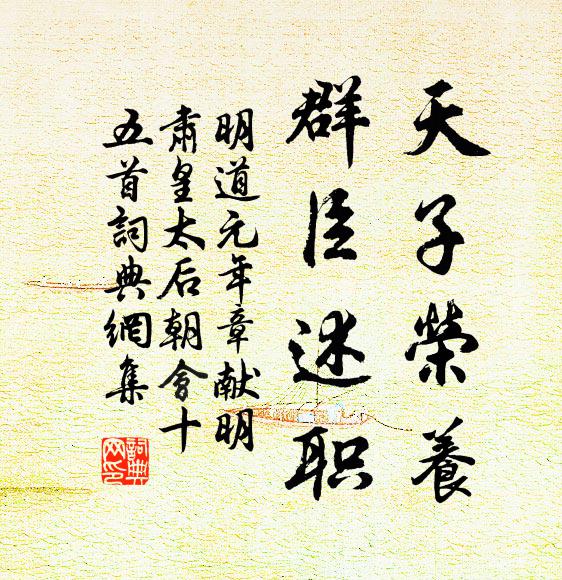 天子榮養
群臣述职
明道元年章献明
肅皇太后朝會十
五首詞典網集
詞典网印